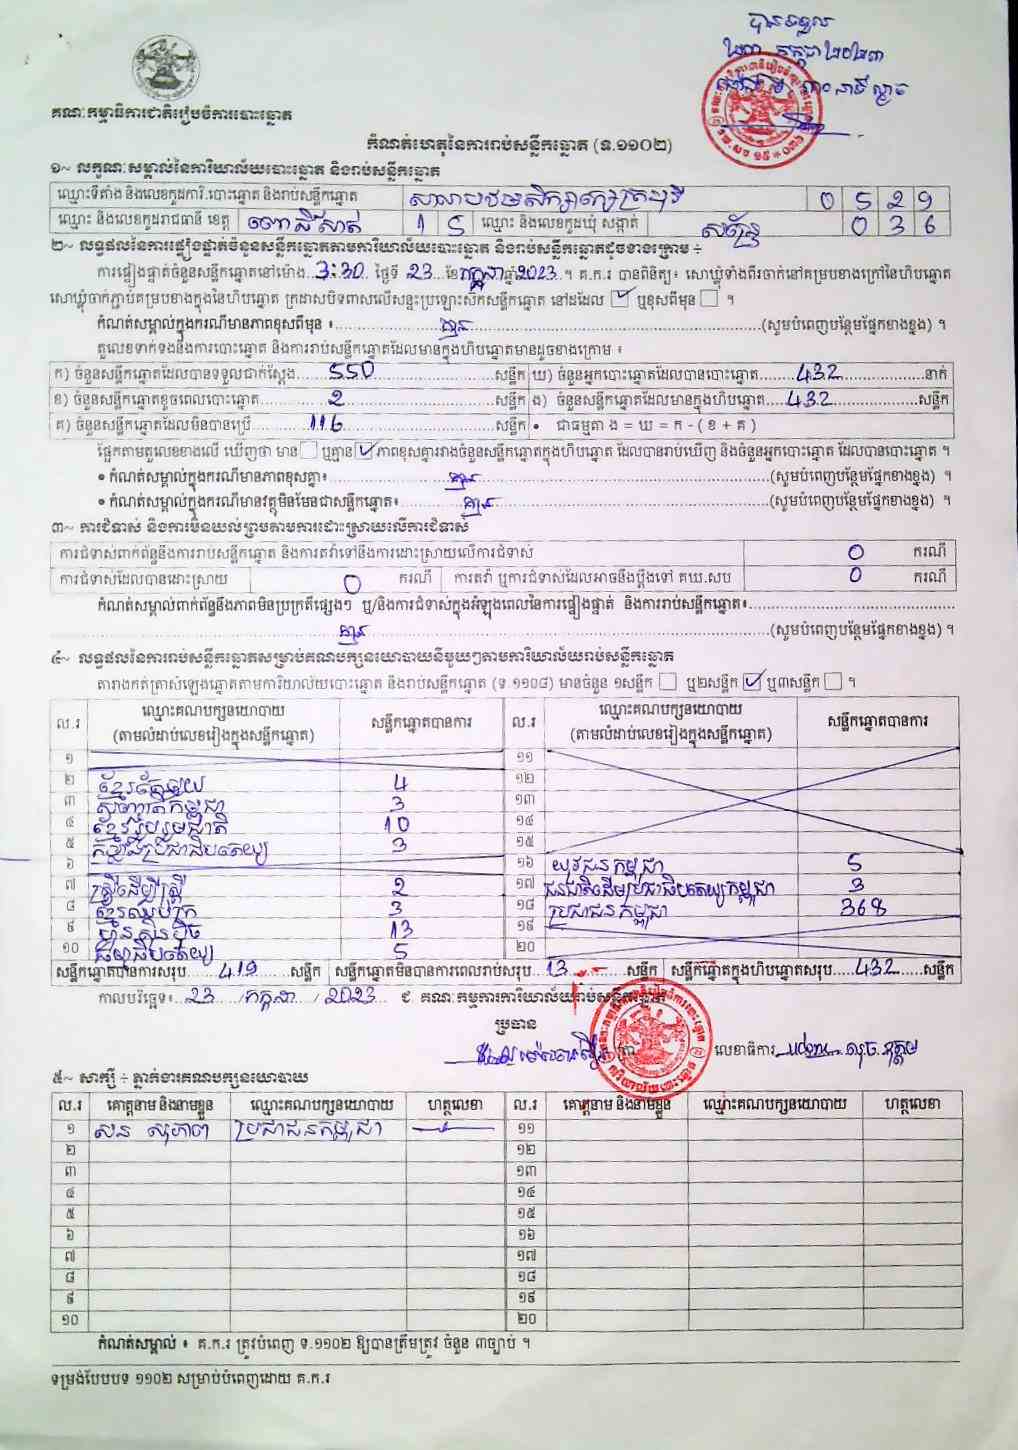 បានទទួល
២៣ កក្កដា ២០២៣
គណៈកម្មាធិការជាតិរៀបចំការបោះឆ្នោត
កំណត់ហេតុនៃការរាប់សន្លឹកឆ្នោត (ទ.១១០២)
១~ លក្ខណៈសម្គាល់នៃការិយាល័យបោះឆ្នោត និងរាប់សន្លឹកឆ្នោត
ឈ្មោះទីតាំង និងលេខកូដការិ.បោះឆ្នោត និងរាប់សន្លឹកឆ្នោត សាលាបឋមសិក្សា 0 5 2 9
ឈ្មោះ និងលេខកូដរាជធានី ខេត្ត ពោធិ៍សាត់ 1 5 ឈ្មោះ និងលេខកូដឃុំ សង្កាត់ 0 3 6
២~ លទ្ធផលនៃការផ្ទៀងផ្ទាត់ចំនួនសន្លឹកឆ្នោតតាមការិយាល័យបោះឆ្នោត និងរាប់សន្លឹកឆ្នោតដូចខាងក្រោម ÷
ការផ្ទៀងផ្ទាត់ចំនួនសន្លឹកឆ្នោតនៅម៉ោង..3:30..ថ្ងៃទី 23 ..ខែ កក្កដា ឆ្នាំ 2023..។ គ.ក.រ បានពិនិត្យ៖ សោឃ្លុំទាំងពីរចាក់នៅគម្របខាងក្រៅនៃហិបឆ្នោត
សោឃ្លុំចាក់ភ្ជាប់គម្របខាងក្នុងនៃហិបឆ្នោត ក្រដាសបិទពាសលើសន្ទះប្រឡោះសឹកសន្លឹកឆ្នោត នៅដដែល ☑ ឬខុសពីមុន ☐ ។
កំណត់សម្គាល់ក្នុងករណីមានភាពខុសពីមុន ៖ គ្មាន (សូមបំពេញបន្ថែមផ្នែកខាងខ្នង) ។
តួលេខទាក់ទងនឹងការបោះឆ្នោត និងការរាប់សន្លឹកឆ្នោតដែលមានក្នុងហិបឆ្នោតមានដូចខាងក្រោម ៖
ក) ចំនួនសន្លឹកឆ្នោតដែលបានទទួលជាក់ស្តែង 550 សន្លឹក ឃ) ចំនួនអ្នកបោះឆ្នោតដែលបានបោះឆ្នោត 432 នាក់
ខ) ចំនួនសន្លឹកឆ្នោតខូចពេលបោះឆ្នោត 2 សន្លឹក ង) ចំនួនសន្លឹកឆ្នោតដែលមានក្នុងហិបឆ្នោត 432 សន្លឹក
គ) ចំនួនសន្លឹកឆ្នោតដែលមិនបានប្រើ 116 សន្លឹក • ជាធម្មតា ង = ឃ = ក - ( ខ + គ )
ផ្អែកតាមតួលេខខាងលើ ឃើញថា មាន ☐ ឬគ្មាន ☑ ភាពខុសគ្នារវាងចំនួនសន្លឹកឆ្នោតក្នុងហិបឆ្នោត ដែលបានរាប់ឃើញ និងចំនួនអ្នកបោះឆ្នោត ដែលបានបោះឆ្នោត ។
• កំណត់សម្គាល់ក្នុងករណីមានភាពខុសគ្នា៖ គ្មាន (សូមបំពេញបន្ថែមផ្នែកខាងខ្នង) ។
• កំណត់សម្គាល់ក្នុងករណីមានវត្ថុមិនមែនជាសន្លឹកឆ្នោត៖ គ្មាន (សូមបំពេញបន្ថែមផ្នែកខាងខ្នង) ។
៣~ ការជំទាស់ និងការមិនយល់ព្រមតាមការដោះស្រាយលើការជំទាស់
ការជំទាស់ពាក់ព័ន្ធនឹងការរាប់សន្លឹកឆ្នោត និងការតវ៉ាទៅនឹងការដោះស្រាយលើការជំទាស់ 0 ករណី
ការជំទាស់ដែលបានដោះស្រាយ 0 ករណី ការតវ៉ា ឬការជំទាស់ដែលអាចនឹងប្តឹងទៅ គឃ.សប 0 ករណី
កំណត់សម្គាល់ពាក់ព័ន្ធនឹងភាពមិនប្រក្រតីផ្សេងៗ ឬ/និងការជំទាស់ក្នុងអំឡុងពេលនៃការផ្ទៀងផ្ទាត់ និងការរាប់សន្លឹកឆ្នោត៖
គ្មាន (សូមបំពេញបន្ថែមផ្នែកខាងខ្នង) ។
៤~ លទ្ធផលនៃការរាប់សន្លឹកឆ្នោតសម្រាប់គណបក្សនយោបាយនីមួយៗតាមការិយាល័យរាប់សន្លឹកឆ្នោត
តារាងកត់ត្រាសំឡេងឆ្នោតតាមការិយាល័យបោះឆ្នោត និងរាប់សន្លឹកឆ្នោត (ទ ១១០៨) មានចំនួន ១សន្លឹក ☐ ឬ២សន្លឹក ☑ ឬ៣សន្លឹក ☐ ។
ល.រ ឈ្មោះគណបក្សនយោបាយ (តាមលំដាប់លេខរៀងក្នុងសន្លឹកឆ្នោត) សន្លឹកឆ្នោតបានការ ល.រ ឈ្មោះគណបក្សនយោបាយ (តាមលំដាប់លេខរៀងក្នុងសន្លឹកឆ្នោត) សន្លឹកឆ្នោតបានការ
១ ១១
២ 4 ១២
៣ សញ្ជាតិកម្ពុជា 3 ១៣
៤ ខ្មែររួបរួមជាតិ 10 ១៤
៥ កម្លាំងប្រជាធិបតេយ្យ 3 ១៥
៦ ១៦ យុវជនកម្ពុជា 5
៧ ស្ត្រីដើម្បីស្ត្រី 2 ១៧ ជនជាតិដើមប្រជាធិបតេយ្យកម្ពុជា 3
៨ ខ្មែរឈប់ក្រ 3 ១៨ ប្រជាជនកម្ពុជា 368
៩ ហ៊្វុនស៊ិនប៉ិច 13 ១៩
១០ ធម្មាធិបតេយ្យ 5 ២០
សន្លឹកឆ្នោតបានការសរុប 419 សន្លឹក សន្លឹកឆ្នោតមិនបានការពេលរាប់សរុប 13 សន្លឹក សន្លឹកឆ្នោតក្នុងហិបឆ្នោតសរុប 432 សន្លឹក
កាលបរិច្ឆេទ៖ 23 / កក្កដា / 2023 ជ. គណៈកម្មការការិយាល័យរាប់សន្លឹកឆ្នោត
ប្រធាន
លេខាធិការ
៥~ សាក្សី ÷ ភ្នាក់ងារគណបក្សនយោបាយ
ល.រ គោត្តនាម និងនាមខ្លួន ឈ្មោះគណបក្សនយោបាយ ហត្ថលេខា ល.រ គោត្តនាម និងនាមខ្លួន ឈ្មោះគណបក្សនយោបាយ ហត្ថលេខា
១ សន សុភាព ប្រជាជនកម្ពុជា ១១
២ ១២
៣ ១៣
៤ ១៤
៥ ១៥
៦ ១៦
៧ ១៧
៨ ១៨
៩ ១៩
១០ ២០
កំណត់សម្គាល់ ៖ គ.ក.រ ត្រូវបំពេញ ទ.១១០២ ឱ្យបានត្រឹមត្រូវ ចំនួន ៣ច្បាប់ ។
ទម្រង់បែបបទ ១១០២ សម្រាប់បំពេញដោយ គ.ក.រ